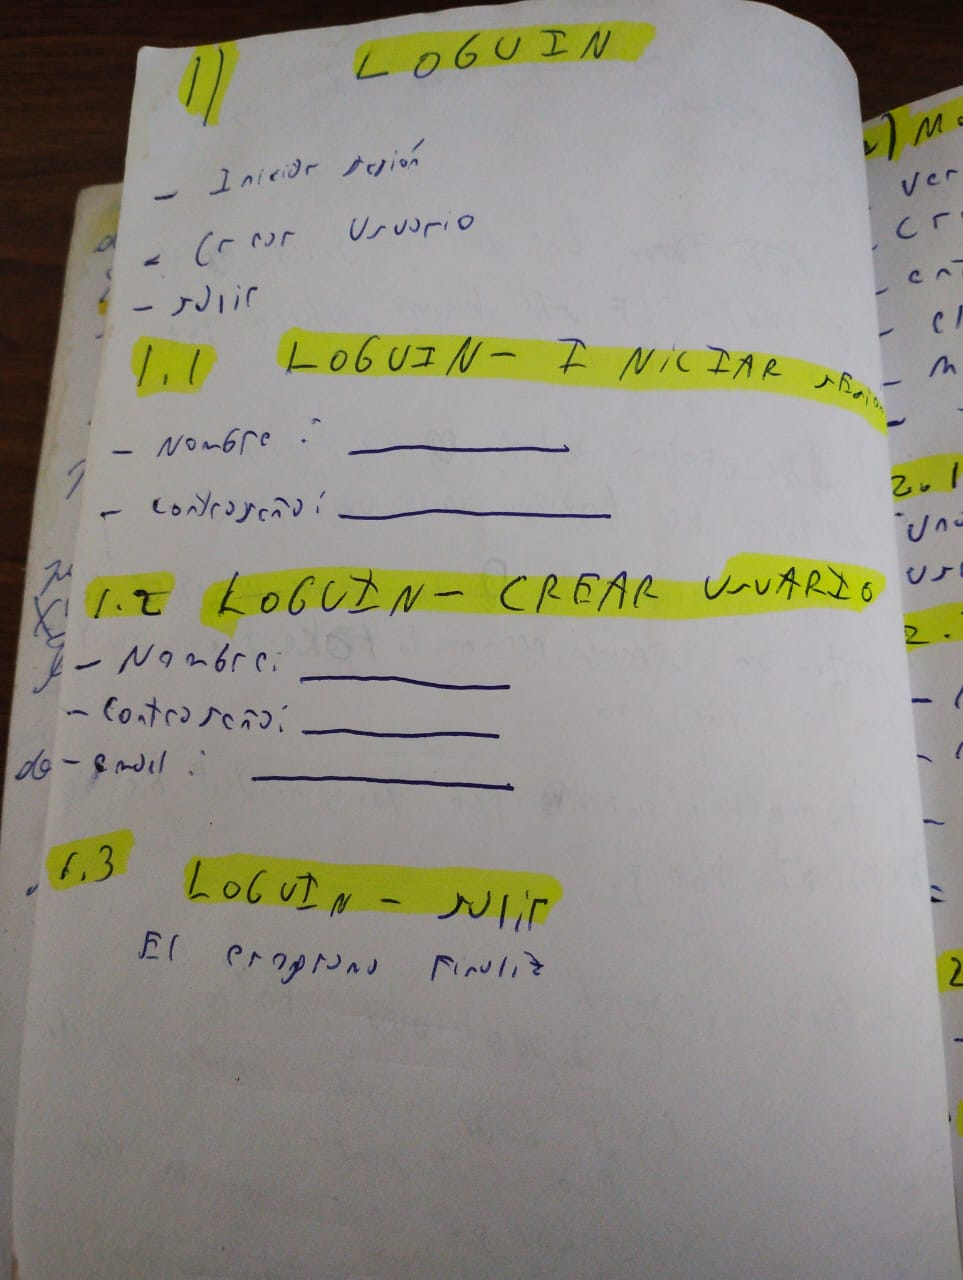 1) LOGUIN
- Iniciar sesión
- Crear Usuario
- salir
1.1 LOGUIN - INICIAR sesion
- Nombre :
- Contraseña :
1.2 LOGUIN - CREAR USUARIO
- Nombre :
- Contraseña :
- email :
1.3 LOGUIN - salir
El programa finaliz
2) M
ver
cr
2.1
2.
2